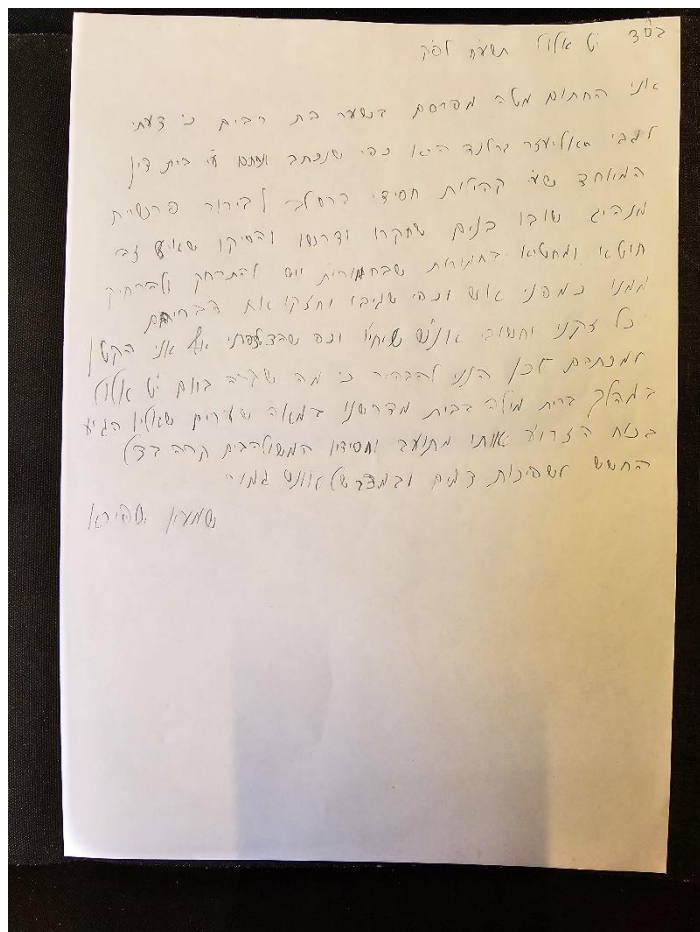 בס"ד י"ט אלול תשע"ח לפ"ק
אני החתום מטה מפרסם בשער בת רבים כי דעתי
לגבי אליעזר ברלנד היא כפי שנכתב ונחתם ע"י בית דין
המיוחד שע"י קהילות חסידי ברסלב לבירור פרשיית
מנהיג שובו בנים שחקרו ודרשו והסיקו שאיש זב
חוטא ומחטיא בחמורות שבחמורות ויש להתרחק ולהרחיק
ממנו כמפני אש וכפי שגיבו וחזקו את הבריחים
כל זקני וחשובי אנ"ש שיחיו וכפי שהצטרפתי אף אני הקטן
למכתבם לכן הנני להבהיר כי מה שקרה ביום י"ט אלול
במהלך ברית מילה בבית מדרשנו במאה שערים שאליו הגיע
בכח הזרוע אותו מתועב וחסידיו המשולהבים קרה בצל
החשש לשפיכות דמים ובמצב של אונס גמור
שמעון שפירא